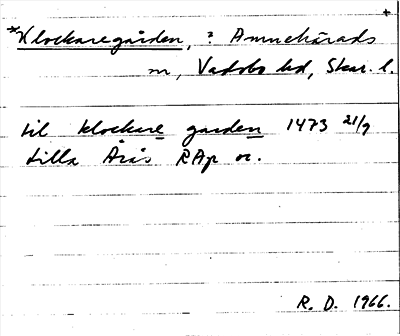 +
*Klockaregården, i Amnehärads
sn, Vadsbo hd, Skar. l.
til klockare garden 1473 21/9
Lilla Årås RAp or.
R. D. 1966.